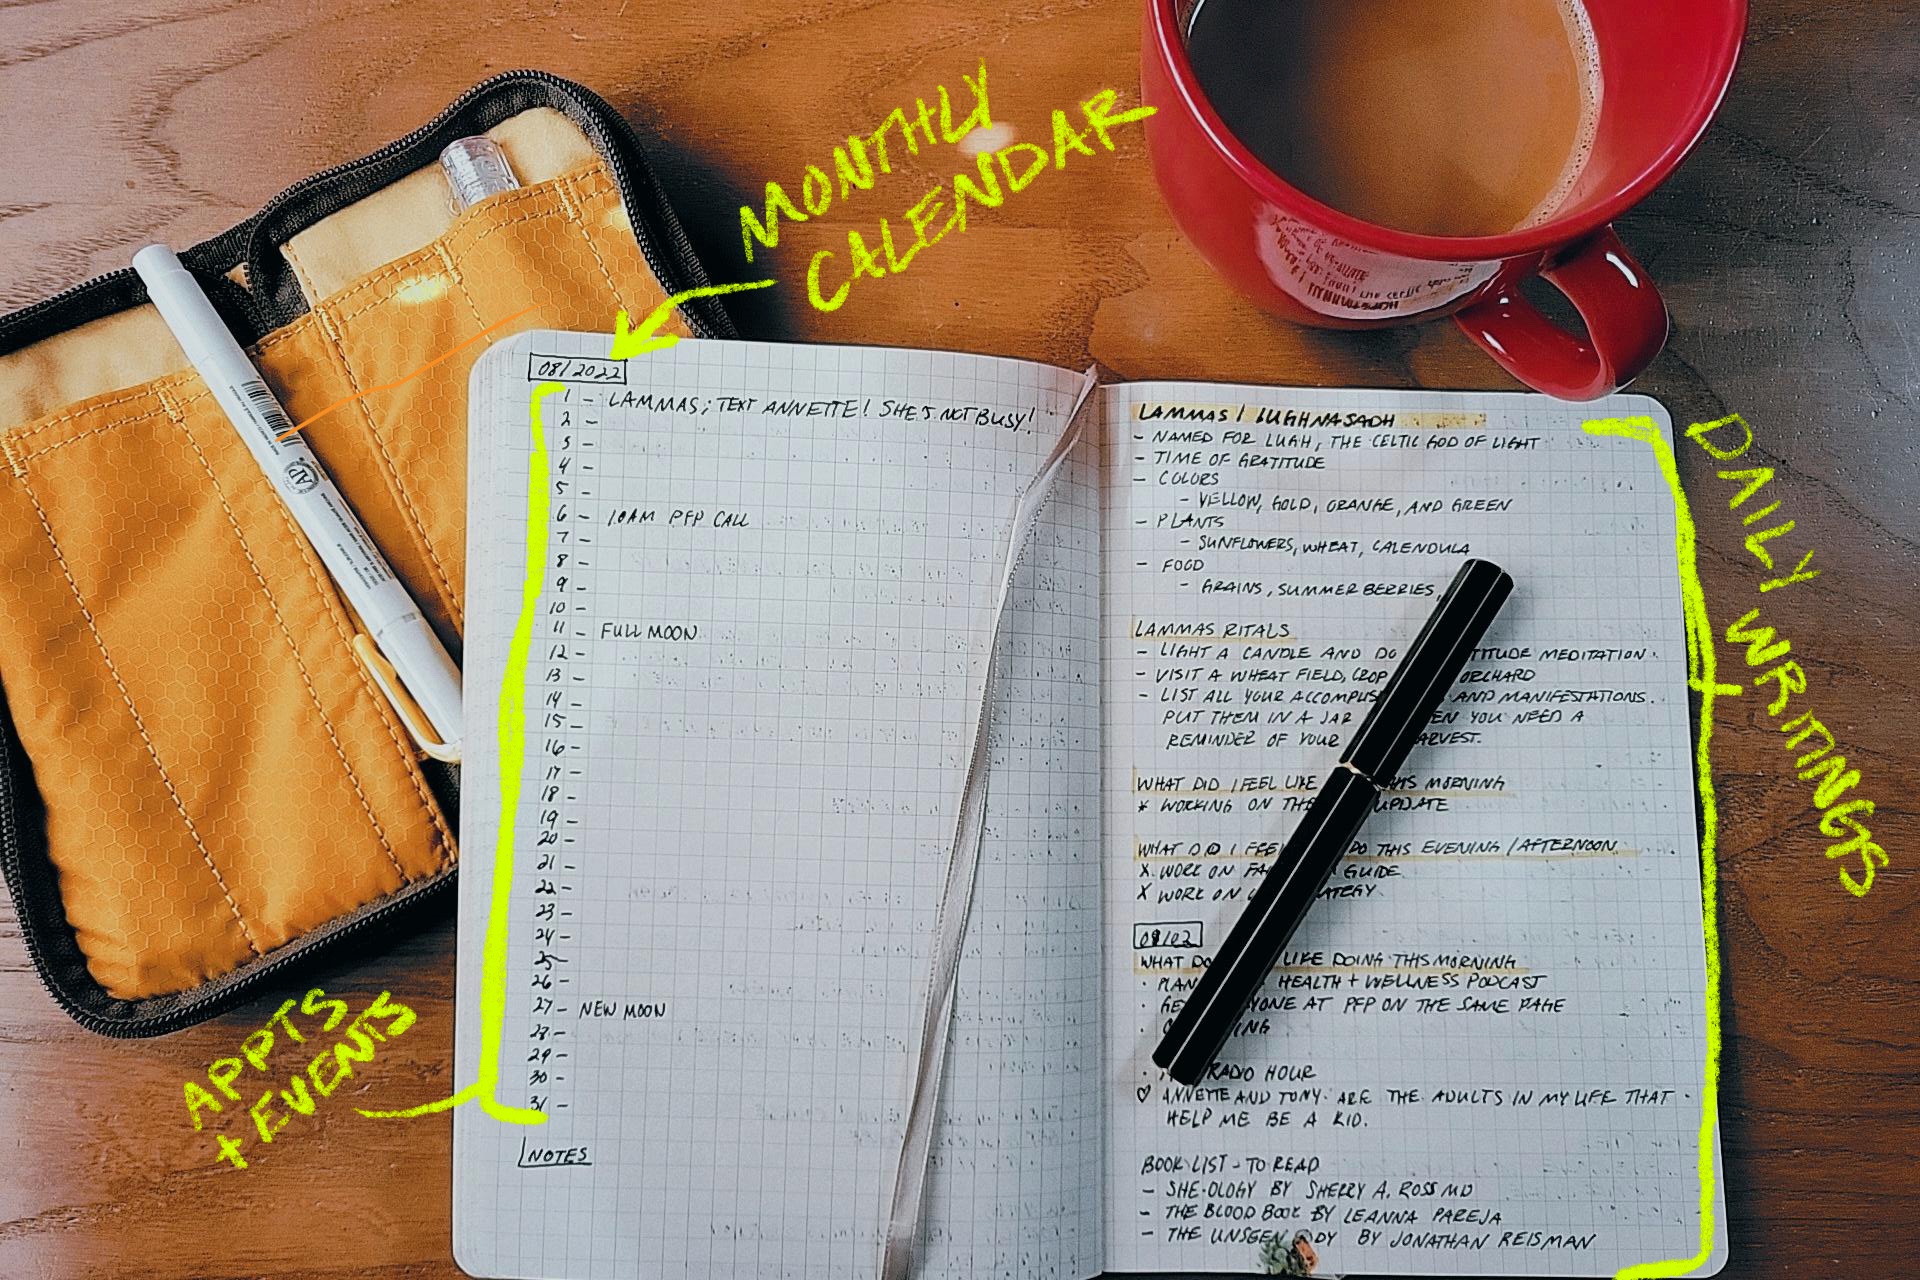 MONTHLY
CALENDAR
APPTS
+ EVENTS
DAILY WRITINGS
08/2022
1 - LAMMAS; TEXT ANNETTE! SHE'S NOT BUSY!
2 -
3 -
4 -
5 -
6 - 10AM PFP CALL
7 -
8 -
9 -
10 -
11 - FULL MOON
12 -
13 -
14 -
15 -
16 -
17 -
18 -
19 -
20 -
21 -
22 -
23 -
24 -
25 -
26 -
27 - NEW MOON
28 -
29 -
30 -
31 -
NOTES
LAMMAS / LUGHNASADH
- NAMED FOR LUGH, THE CELTIC GOD OF LIGHT
- TIME OF GRATITUDE
- COLORS
- YELLOW, GOLD, ORANGE, AND GREEN
- PLANTS
- SUNFLOWERS, WHEAT, CALENDULA
- FOOD
- GRAINS, SUMMER BERRIES,
LAMMAS RITALS
- LIGHT A CANDLE AND DO TITUDE MEDITATION.
- VISIT A WHEAT FIELD, CROP ORCHARD
- LIST ALL YOUR ACCOMPLIS AND MANIFESTATIONS.
PUT THEM IN A JAR EN YOU NEED A
REMINDER OF YOUR ARVEST.
WHAT DID I FEEL LIKE THIS MORNING
* WORKING ON THE UPDATE
WHAT DID I FEEL DO THIS EVENING / AFTERNOON
X WORK ON GUIDE
X WORK ON ATEGY.
08/02
WHAT DO LIKE DOING THIS MORNING
· PLAN HEALTH + WELLNESS PODCAST
· GE YONE AT PFP ON THE SAME PAGE
· ING
· RADIO HOUR
♡ ANNETTE AND TONY ARE THE ADULTS IN MY LIFE THAT
HELP ME BE A KID.
BOOK LIST - TO READ
- SHE-OLOGY BY SHERRY A. ROSS MD
- THE BLOOD BOOK BY LEANNA PAREJA
- THE UNSEEN ODY BY JONATHAN REISMAN
AP